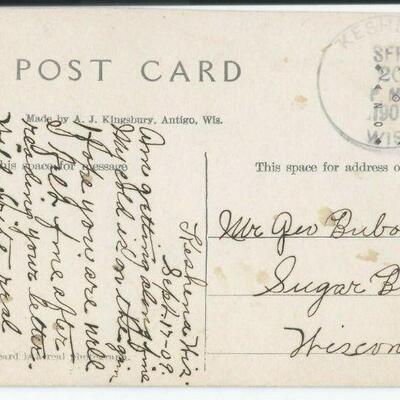 POST CARD
Made by A. J. Kingsbury, Antigo, Wis.
his space for message
This space for address o
KESH
SEP
20
190
WIS
Keshena, Wis.
Sept. 17-09.
Am getting along fine
My cold is on the gain
Hope you are well
I feel fine after
reading your letter.
Will write real
Mr Geo Dubo
Sugar B
Wiscon
ard is a real photograph.